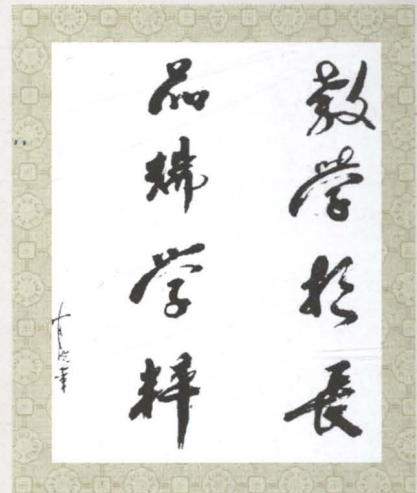 教学相長
品端学粹